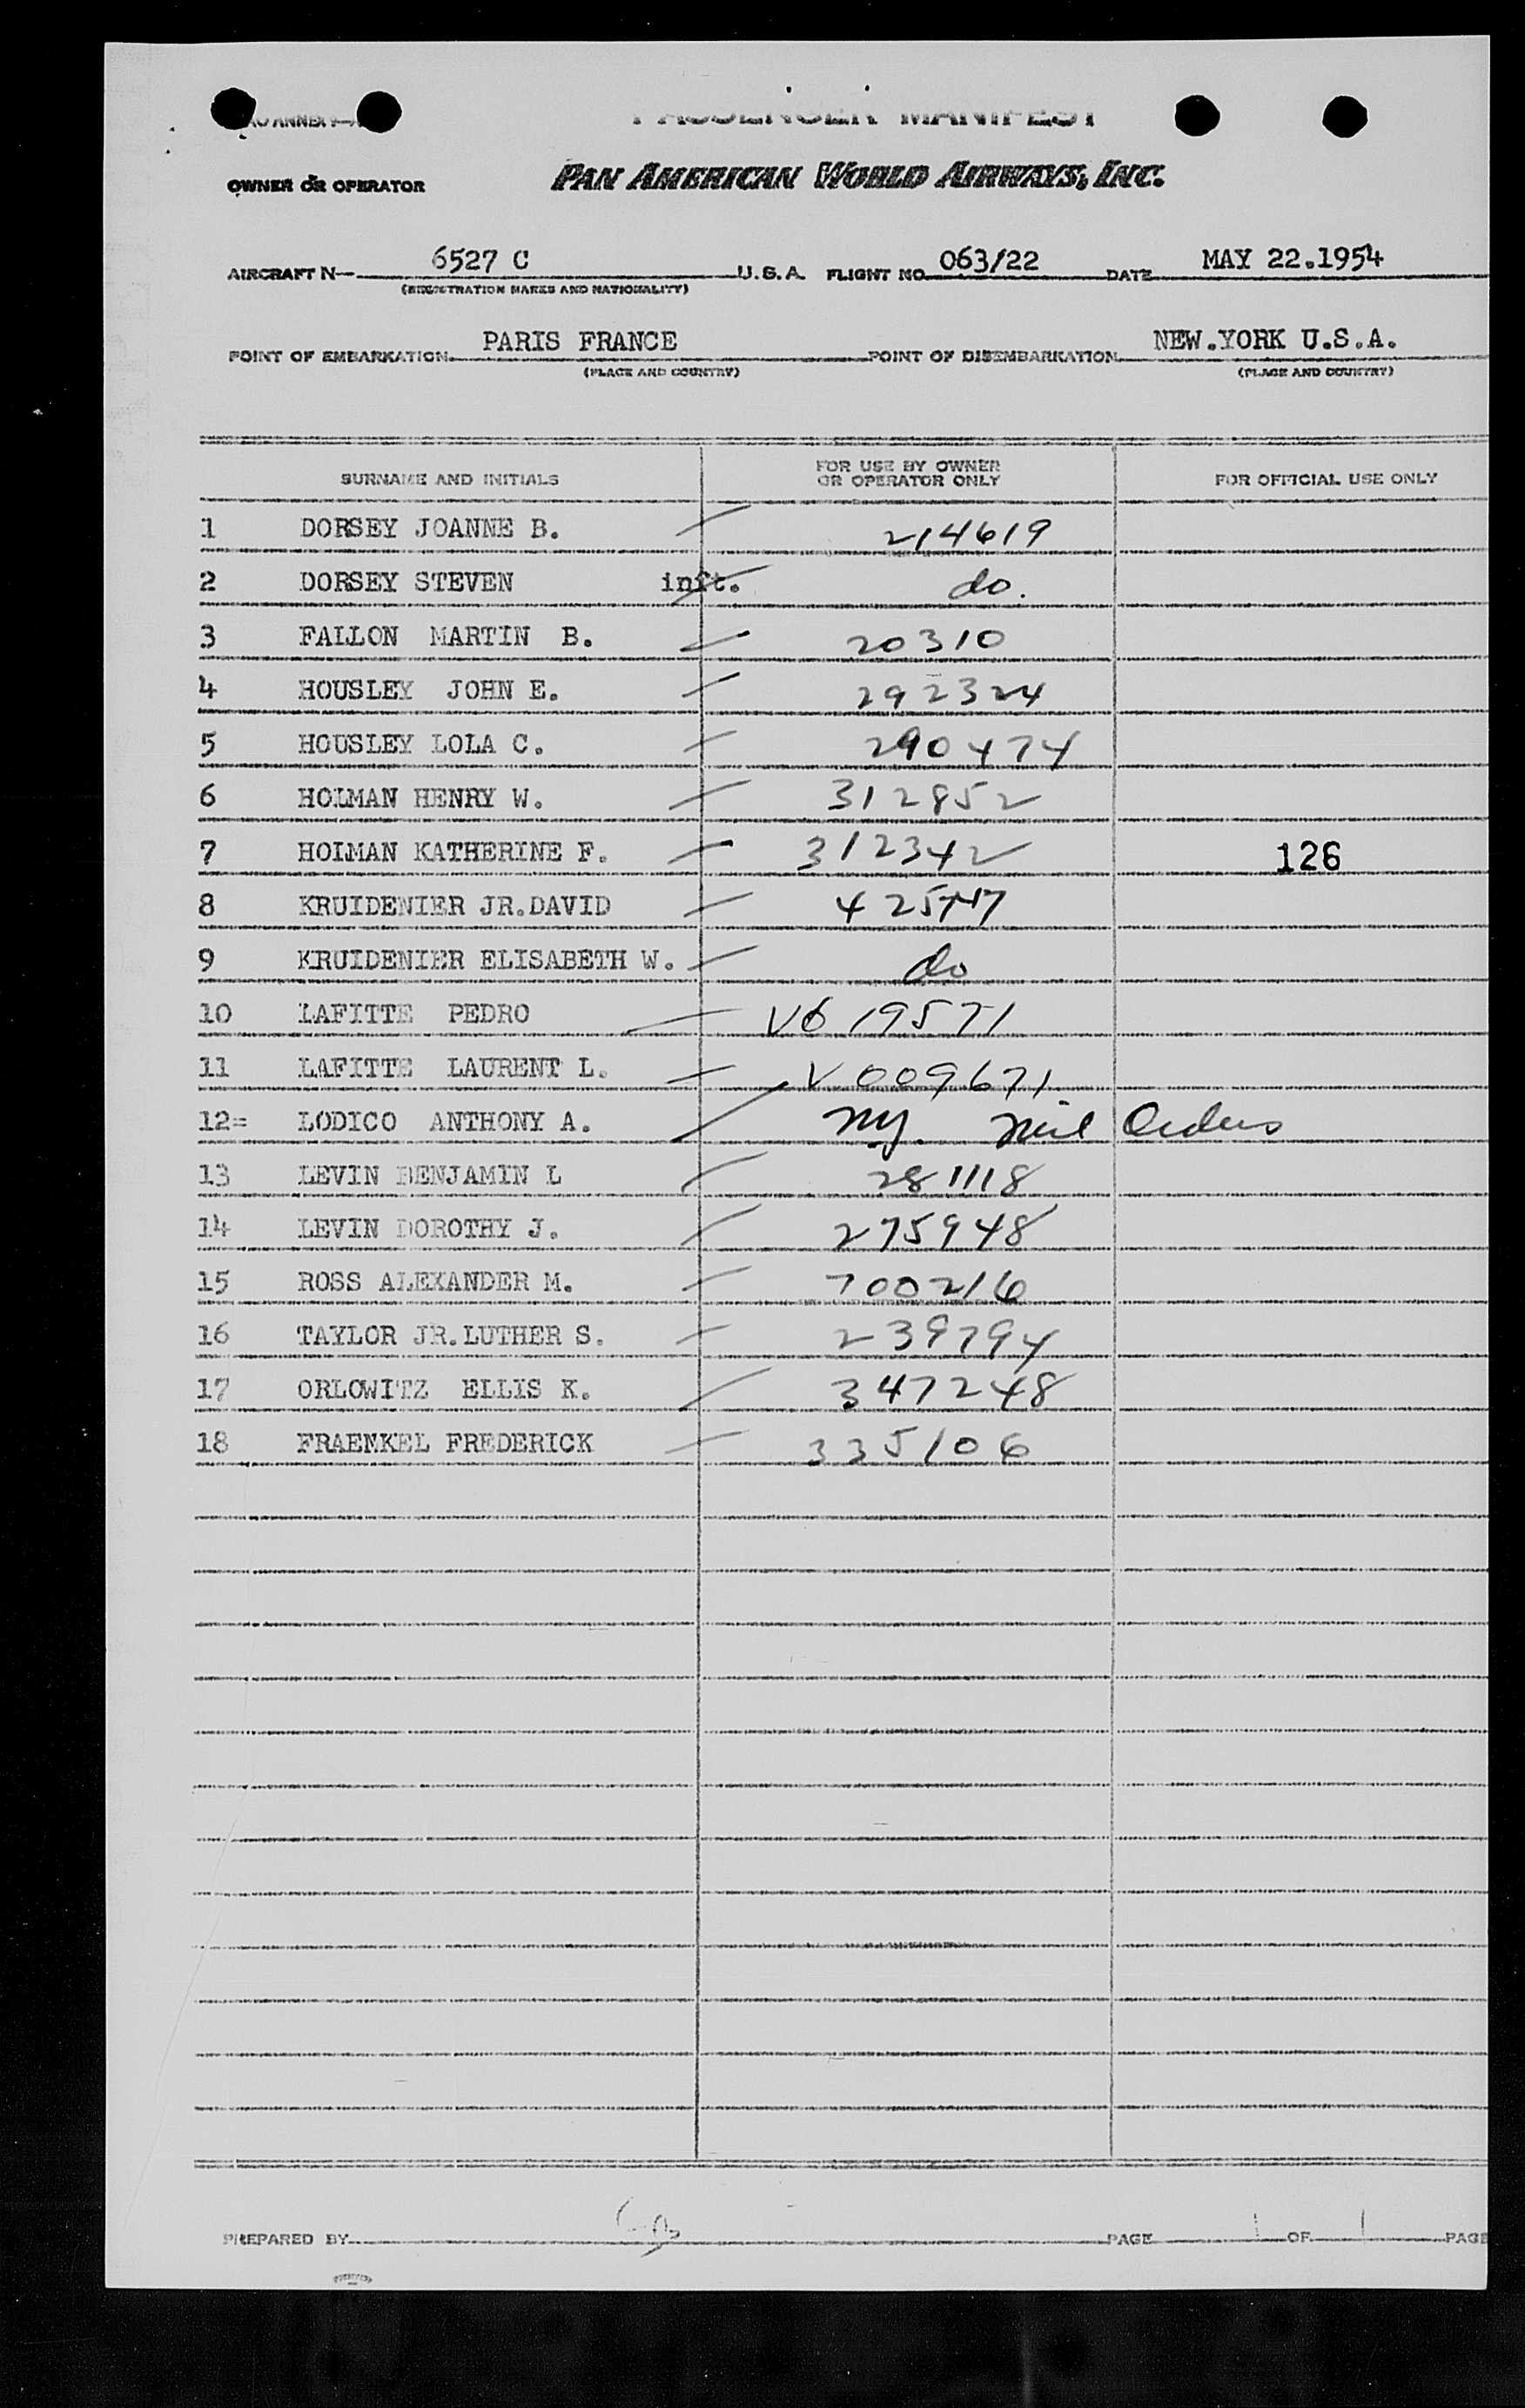 PASSENGER MANIFEST
OWNER OR OPERATOR PAN AMERICAN WORLD AIRWAYS, INC.
AIRCRAFT N— 6527 C U.S.A. FLIGHT NO. 063/22 DATE MAY 22.1954
(REGISTRATION MARKS AND NATIONALITY)
POINT OF EMBARKATION PARIS FRANCE POINT OF DISEMBARKATION NEW.YORK U.S.A.
(PLACE AND COUNTRY) (PLACE AND COUNTRY)
SURNAME AND INITIALS FOR USE BY OWNER OR OPERATOR ONLY FOR OFFICIAL USE ONLY
1 DORSEY JOANNE B. 214619
2 DORSEY STEVEN inft. do.
3 FALLON MARTIN B. 20310
4 HOUSLEY JOHN E. 292324
5 HOUSLEY LOLA C. 290474
6 HOLMAN HENRY W. 312852
7 HOLMAN KATHERINE F. 312342 126
8 KRUIDENIER JR.DAVID
9 KRUIDENIER ELISABETH W. do
10 LAFITTE PEDRO
11 LAFITTE LAURENT L. V009671
12= LODICO ANTHONY A. Mil Orders
13 LEVIN BENJAMIN L 281118
14 LEVIN DOROTHY J. 275948
15 ROSS ALEXANDER M. 700216
16 TAYLOR JR.LUTHER S. 239794
17 ORLOWITZ ELLIS K. 347248
18 FRAENKEL FREDERICK 335106
PREPARED BY PAGE 1 OF 1 PAGE